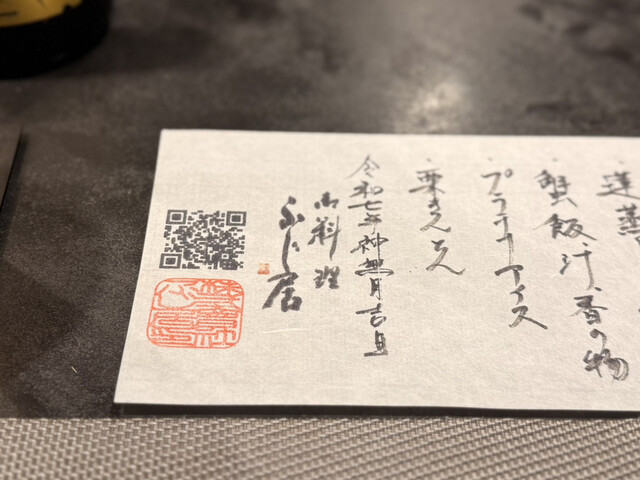 蓮蒸
・蟹飯 汁、香の物
・プラチナアイス
・栗きんとん
令和七年神無月吉日
御料理
ふじ居